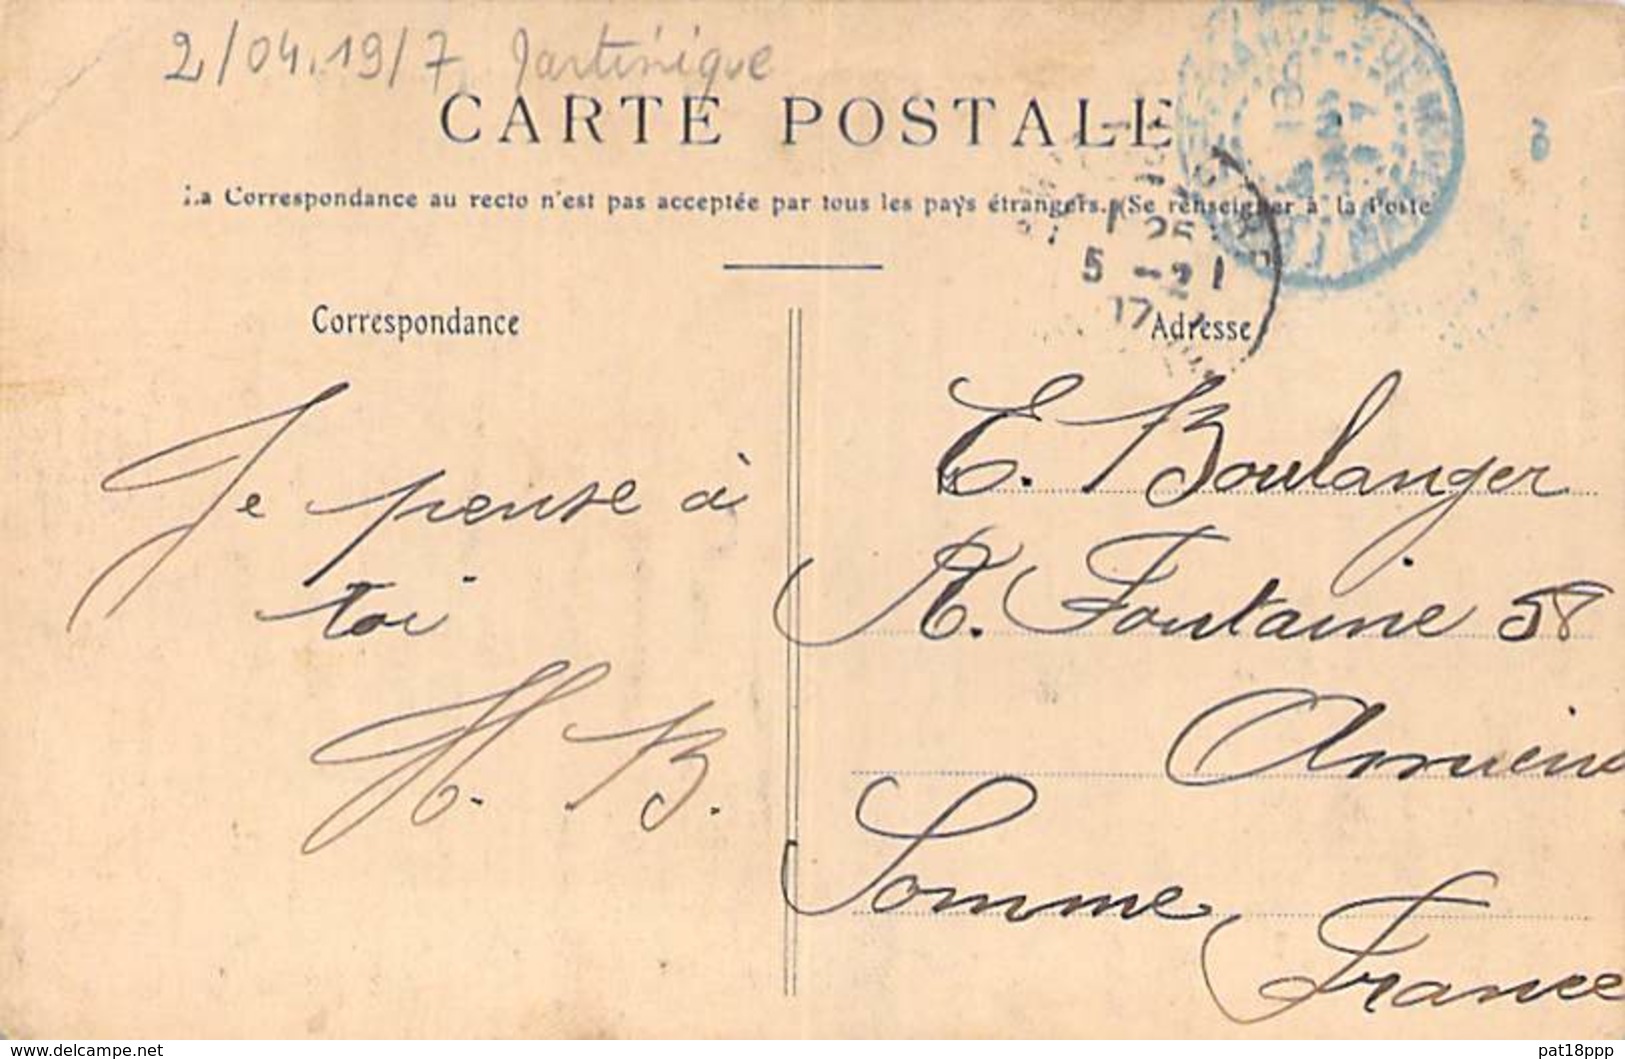 2/04.19/7 Martinique
CARTE POSTALE
La Correspondance au recto n'est pas acceptée par tous les pays étrangers. (Se renseigner à la Poste
25
5 - 2
17
Correspondance
Adresse
Je pense à
toi
H. B.
E. Boulanger
R. Fontaine 58
Amiens
Somme
France
pat18ppp
www.delcampe.net